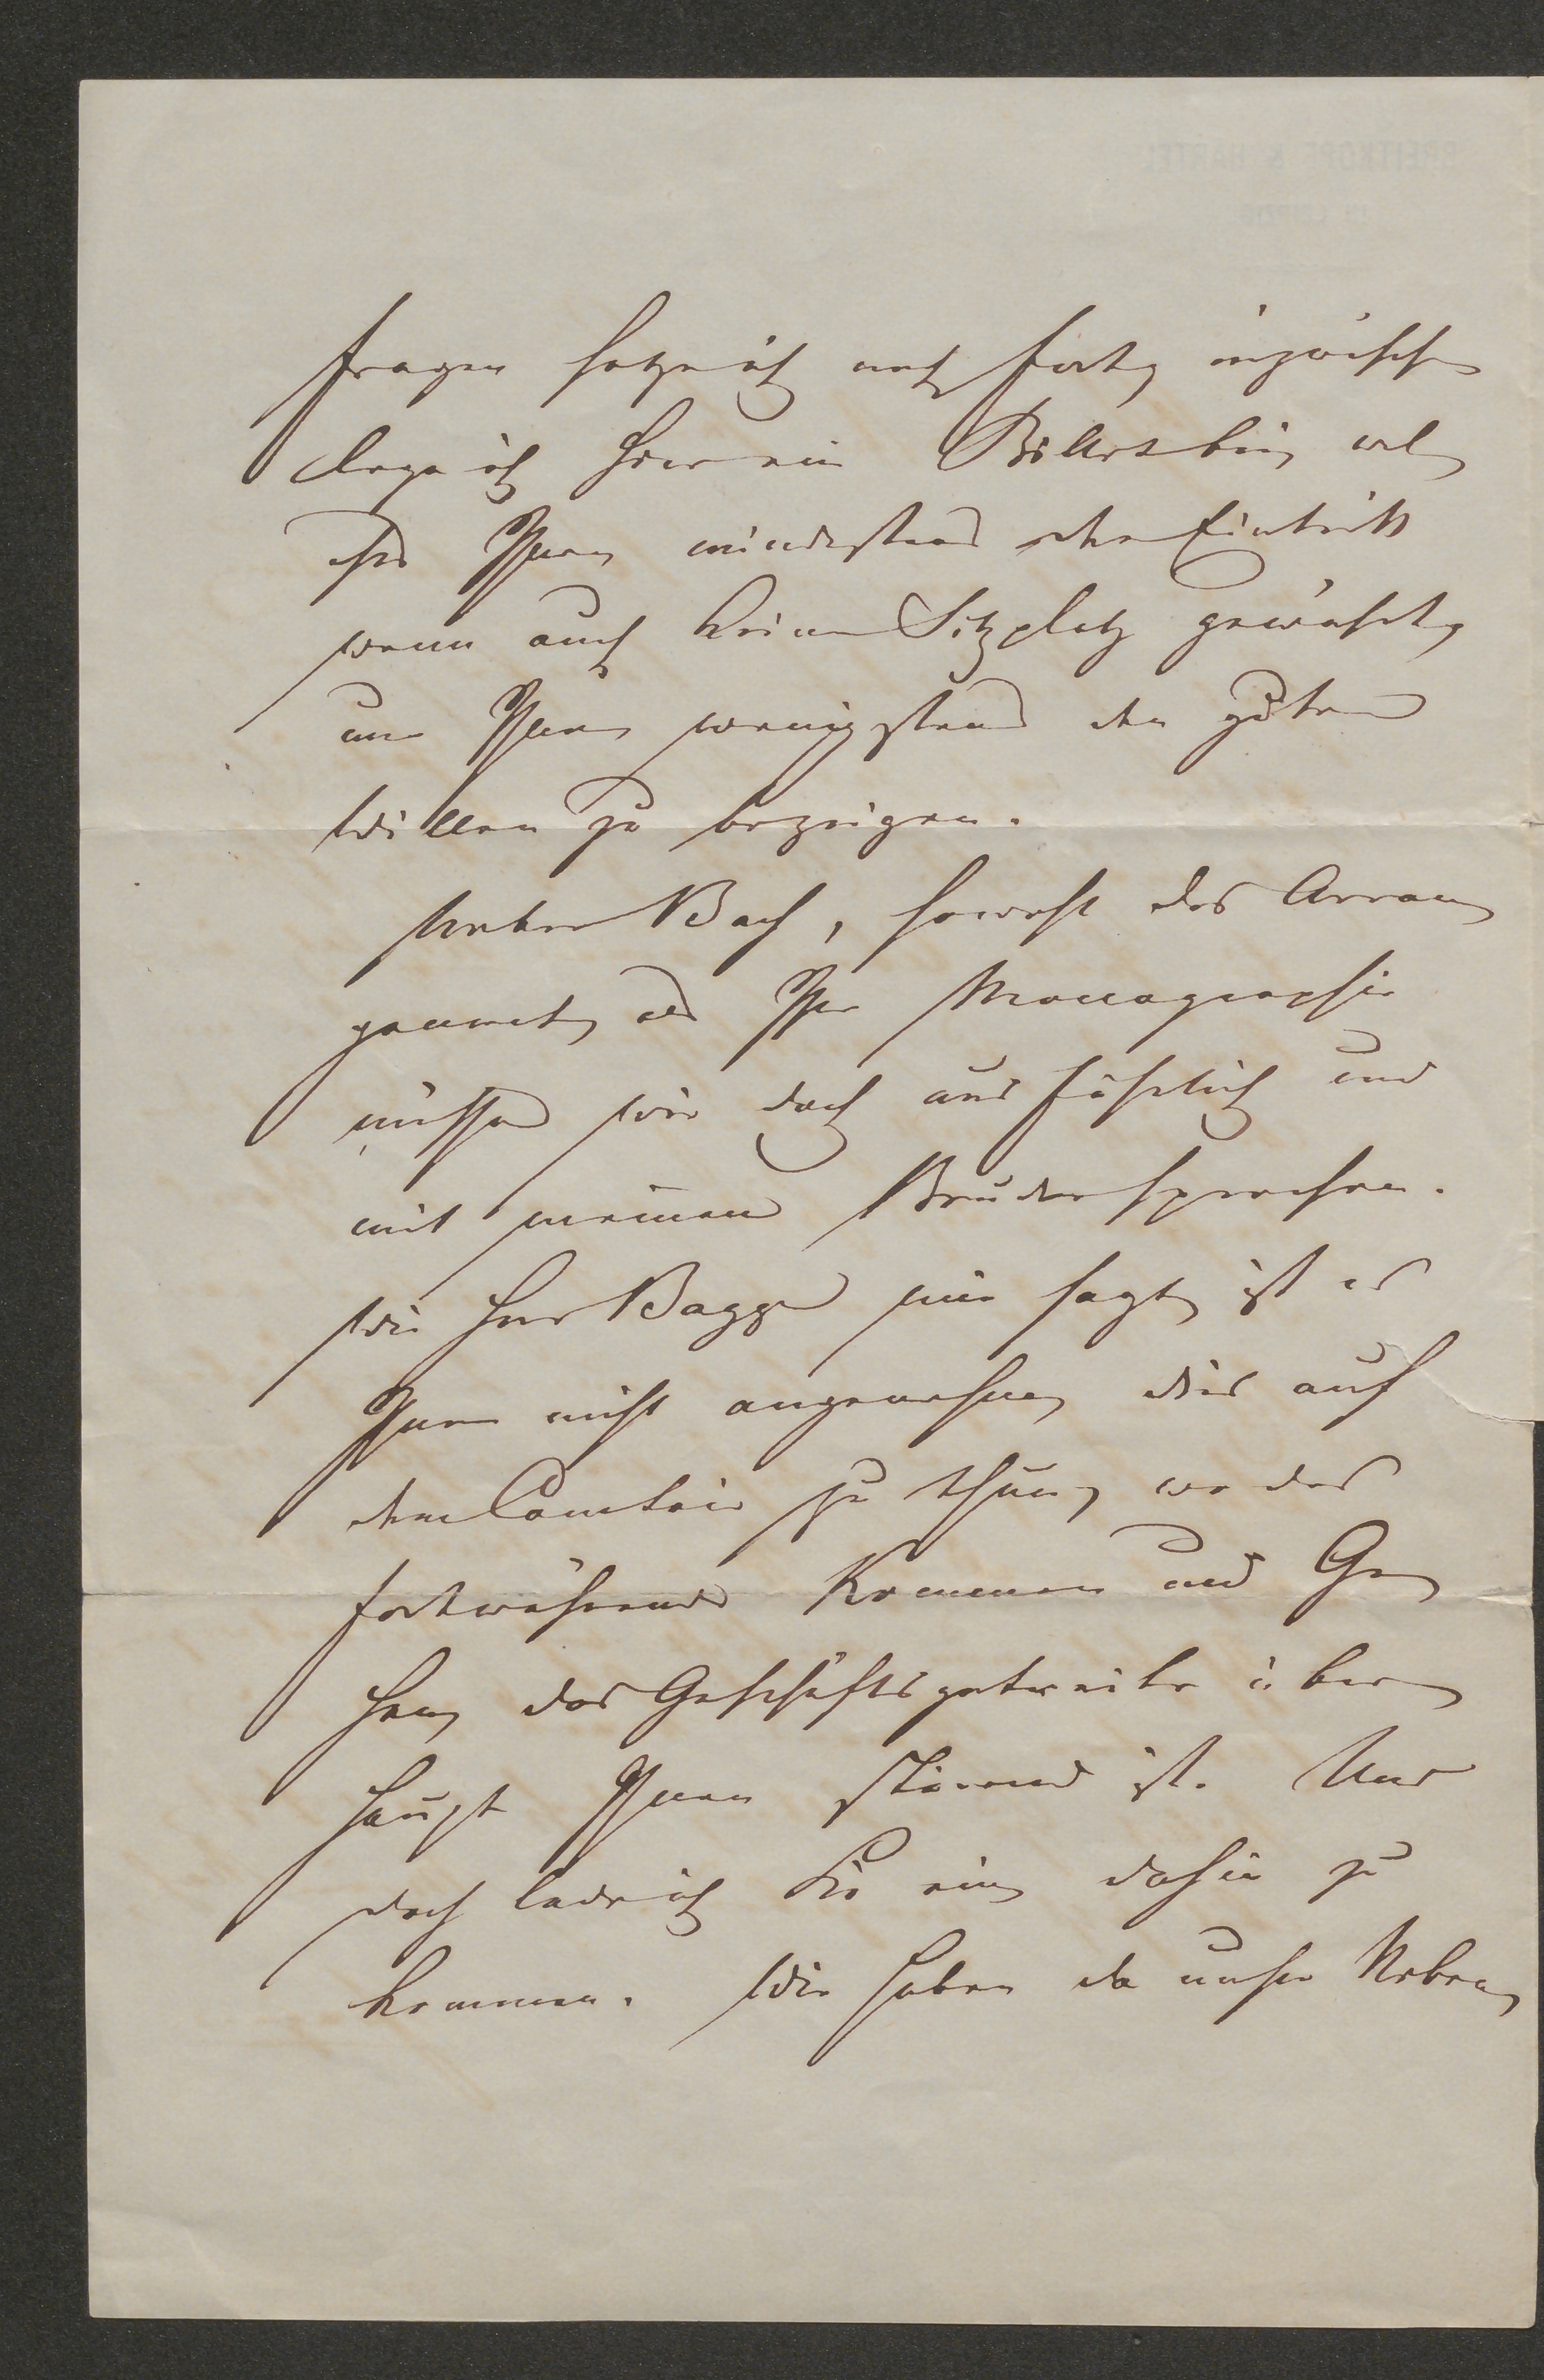 fragen setze ich noch fort, inzwischen
lege ich hier ein Billet bei, wel
ches Ihnen mindestens den Eintritt
wenn auch keinen Sitzplatz gewährt,
um Ihnen wenigstens den guten
Willen zu bezeigen.
Ueber Bach, sowohl das Arran
gement, als Ihre Monographie
müssen wir doch ausführlich und
mit meinem Bruder sprechen.
Wie Herr Bagge mir sagt, ist es
Ihnen nicht angenehm, dies auf
dem Comtoir zu thun, wo das
fortwährende Kommen und Ge
hen, das Geschäftsgetreibe über
haupt Ihnen störend ist. Und
doch lade ich Sie ein, dahin zu
kommen. Wir haben da unser Neben